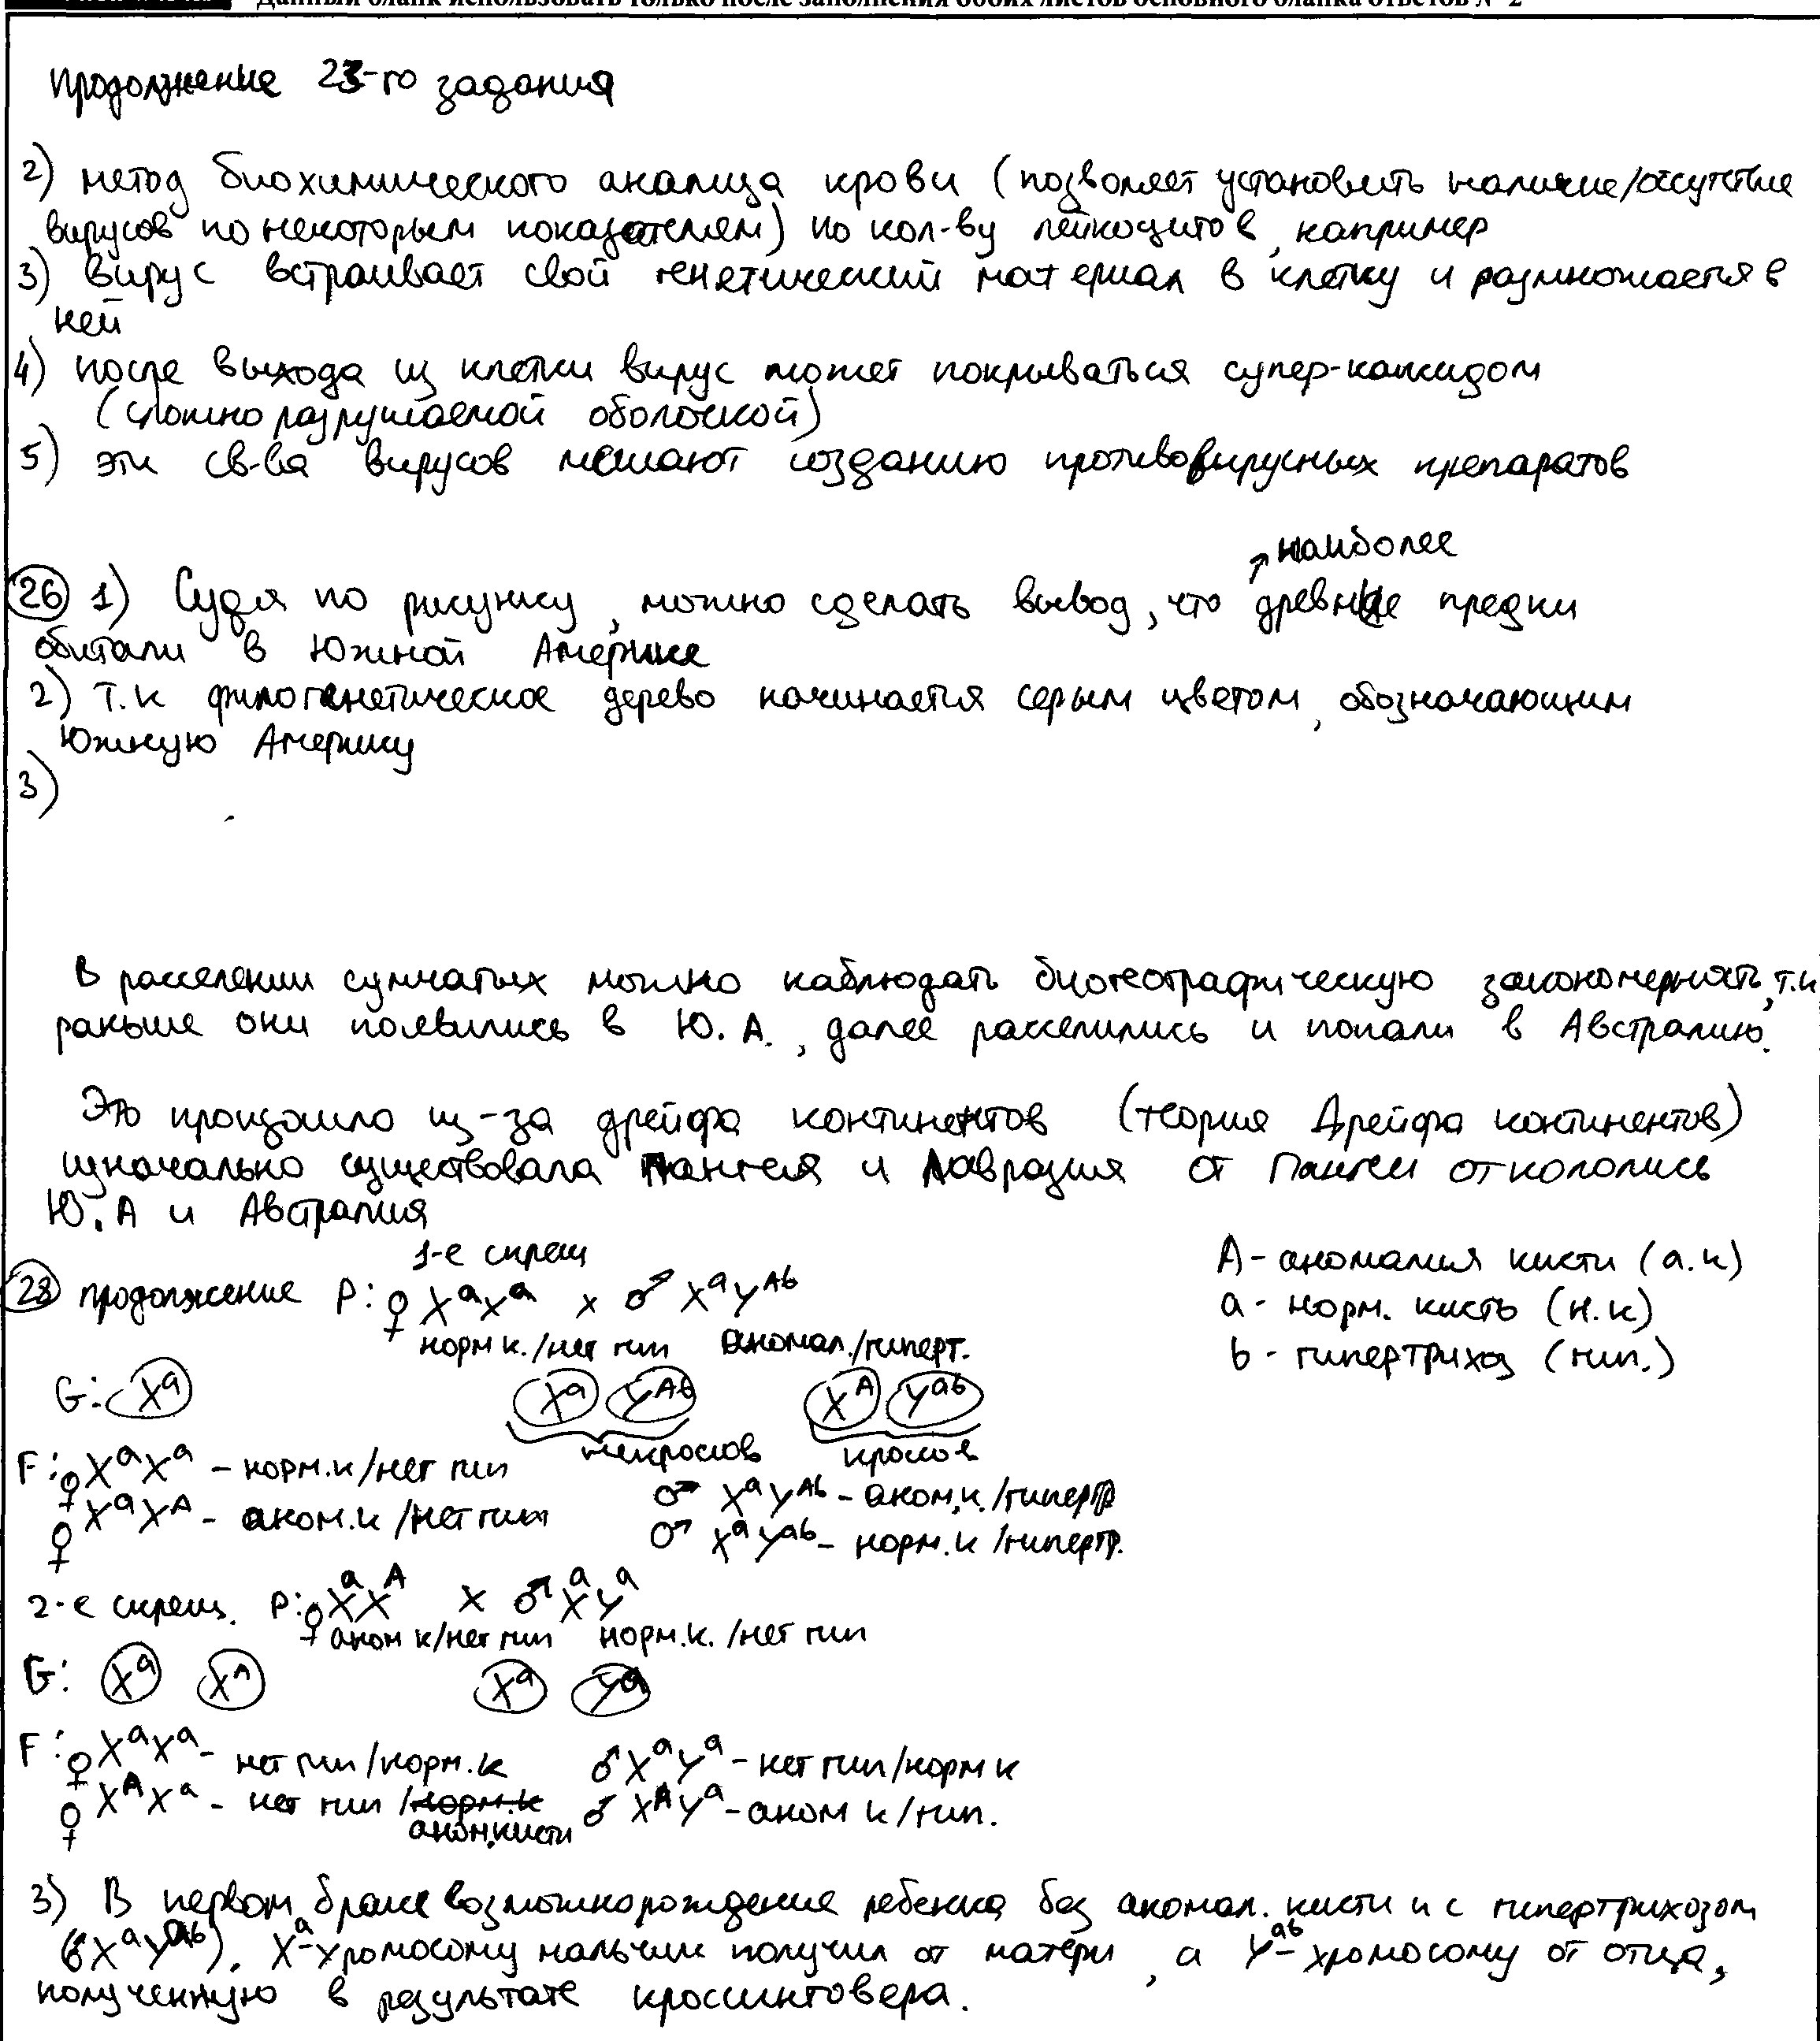 Данный бланк использовать только после заполнения обоих листов основного бланка ответов № 2
Продолжение 23-го задания
2) метод биохимического анализа крови (позволяет установить наличие/отсутствие
вирусов по некоторым показателям) по кол-ву лейкоцитов, например
3) Вирус встраивает свой генетический материал в клетку и размножается в
ней
4) после выхода из клетки вирус может покрываться супер-капсидом
(сложно разрушаемой оболочкой)
5) эти св-ва вирусов мешают созданию противовирусных препаратов
наиболее
26 1) Судя по рисунку, можно сделать вывод, что древние предки
обитали в Южной Америке
2) Т.к филогенетическое дерево начинается серым цветом, обозначающим
Южную Америку
3)
В расселении сумчатых можно наблюдать биогеографическую закономерность, т.к
раньше они появились в Ю.А., далее расселились и попали в Австралию.
Это произошло из-за дрейфа континентов (теория Дрейфа континентов)
изначально существовала Пангея и Лавразия от Пангеи откололись
Ю.А и Австралия
1-е скрещ
А - аномалия кисти (а.к)
28 продолжение P: ♀ XᵃXᵃ x ♂ XᵃYᴬᵇ
а - норм. кисть (н.к)
норм к./нет гип аномал./гиперт.
b - гипертрихоз (гип.)
G: Xᵃ Xᵃ Yᴬᵇ Xᴬ Yᵃᵇ
некроссов кроссов
F: ♀ XᵃXᵃ - норм.к/нет гип
♂ XᵃYᴬᵇ - аном.к./гипертр
♀ XᵃXᴬ - аном.к/нет гип
♂ XᵃYᵃᵇ - норм.к/гипертр.
2-е скрещ. P: ♀ XᵃXᴬ x ♂ XᵃYᵃ
аном к/нет гип норм.к./нет гип
G: Xᵃ Xᴬ Xᵃ Yᵃ
F: ♀ XᵃXᵃ - нет гип/норм.к ♂ XᵃYᵃ - нет гип/норм к
♀ XᴬXᵃ - нет гип/норм.к ♂ XᴬYᵃ - аном к/гип.
аном.кисти
3) В первом браке возможно рождение ребенка без аномал. кисти и с гипертрихозом
(♂XᵃYᵃᵇ). Xᵃ-хромосому мальчик получил от матери, а Yᵃᵇ-хромосому от отца,
полученную в результате кроссинговера.